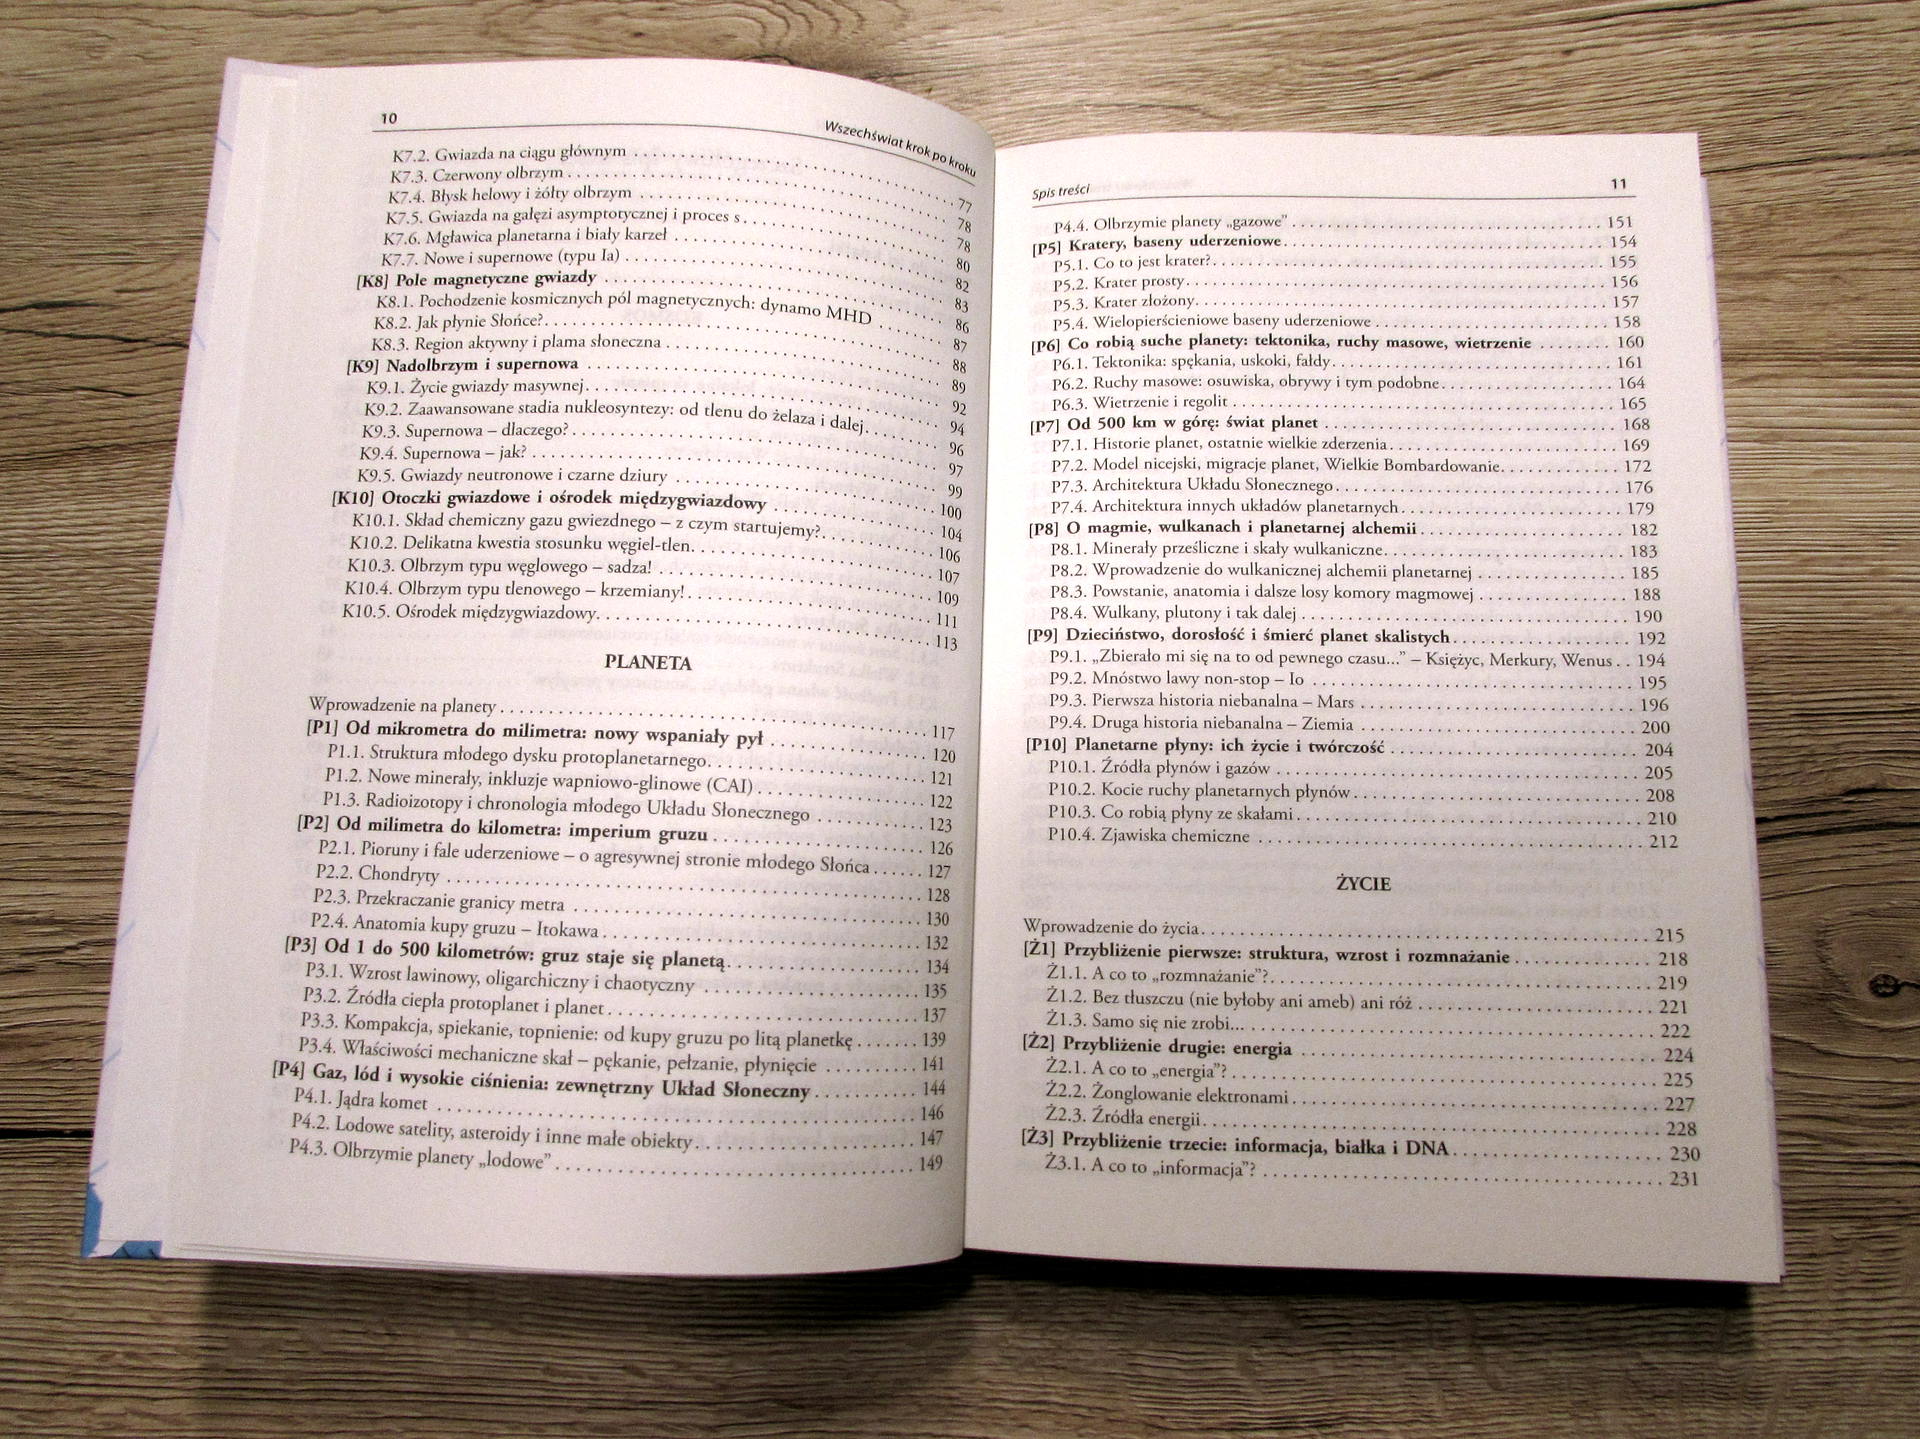 10 Wszechświat krok po kroku
K7.2. Gwiazda na ciągu głównym . . . . . 77
K7.3. Czerwony olbrzym . . . . . 78
K7.4. Błysk helowy i żółty olbrzym . . . . . 78
K7.5. Gwiazda na gałęzi asymptotycznej i proces s . . . . . 80
K7.6. Mgławica planetarna i biały karzeł . . . . . 82
K7.7. Nowe i supernowe (typu Ia) . . . . . 83
[K8] Pole magnetyczne gwiazdy . . . . . 86
K8.1. Pochodzenie kosmicznych pól magnetycznych: dynamo MHD . . . . . 87
K8.2. Jak płynie Słońce? . . . . . 88
K8.3. Region aktywny i plama słoneczna . . . . . 89
[K9] Nadolbrzym i supernowa . . . . . 92
K9.1. Życie gwiazdy masywnej . . . . . 94
K9.2. Zaawansowane stadia nukleosyntezy: od tlenu do żelaza i dalej . . . . . 96
K9.3. Supernowa – dlaczego? . . . . . 97
K9.4. Supernowa – jak? . . . . . 99
K9.5. Gwiazdy neutronowe i czarne dziury . . . . . 100
[K10] Otoczki gwiazdowe i ośrodek międzygwiazdowy . . . . . 104
K10.1. Skład chemiczny gazu gwiezdnego – z czym startujemy? . . . . . 106
K10.2. Delikatna kwestia stosunku węgiel-tlen . . . . . 107
K10.3. Olbrzym typu węglowego – sadza! . . . . . 109
K10.4. Olbrzym typu tlenowego – krzemiany! . . . . . 111
K10.5. Ośrodek międzygwiazdowy . . . . . 113
PLANETA
Wprowadzenie na planety . . . . . 117
[P1] Od mikrometra do milimetra: nowy wspaniały pył . . . . . 120
P1.1. Struktura młodego dysku protoplanetarnego . . . . . 121
P1.2. Nowe minerały, inkluzje wapniowo-glinowe (CAI) . . . . . 122
P1.3. Radioizotopy i chronologia młodego Układu Słonecznego . . . . . 123
[P2] Od milimetra do kilometra: imperium gruzu . . . . . 126
P2.1. Pioruny i fale uderzeniowe – o agresywnej stronie młodego Słońca . . . . . 127
P2.2. Chondryty . . . . . 128
P2.3. Przekraczanie granicy metra . . . . . 130
P2.4. Anatomia kupy gruzu – Itokawa . . . . . 132
[P3] Od 1 do 500 kilometrów: gruz staje się planetą . . . . . 134
P3.1. Wzrost lawinowy, oligarchiczny i chaotyczny . . . . . 135
P3.2. Źródła ciepła protoplanet i planet . . . . . 137
P3.3. Kompakcja, spiekanie, topnienie: od kupy gruzu po litą planetkę . . . . . 139
P3.4. Właściwości mechaniczne skał – pękanie, pełzanie, płynięcie . . . . . 141
[P4] Gaz, lód i wysokie ciśnienia: zewnętrzny Układ Słoneczny . . . . . 144
P4.1. Jądra komet . . . . . 146
P4.2. Lodowe satelity, asteroidy i inne małe obiekty . . . . . 147
P4.3. Olbrzymie planety „lodowe” . . . . . 149
Spis treści 11
P4.4. Olbrzymie planety „gazowe” . . . . . 151
[P5] Kratery, baseny uderzeniowe . . . . . 154
P5.1. Co to jest krater? . . . . . 155
P5.2. Krater prosty . . . . . 156
P5.3. Krater złożony . . . . . 157
P5.4. Wielopierścieniowe baseny uderzeniowe . . . . . 158
[P6] Co robią suche planety: tektonika, ruchy masowe, wietrzenie . . . . . 160
P6.1. Tektonika: spękania, uskoki, fałdy . . . . . 161
P6.2. Ruchy masowe: osuwiska, obrywy i tym podobne . . . . . 164
P6.3. Wietrzenie i regolit . . . . . 165
[P7] Od 500 km w górę: świat planet . . . . . 168
P7.1. Historie planet, ostatnie wielkie zderzenia . . . . . 169
P7.2. Model nicejski, migracje planet, Wielkie Bombardowanie . . . . . 172
P7.3. Architektura Układu Słonecznego . . . . . 176
P7.4. Architektura innych układów planetarnych . . . . . 179
[P8] O magmie, wulkanach i planetarnej alchemii . . . . . 182
P8.1. Minerały prześliczne i skały wulkaniczne . . . . . 183
P8.2. Wprowadzenie do wulkanicznej alchemii planetarnej . . . . . 185
P8.3. Powstanie, anatomia i dalsze losy komory magmowej . . . . . 188
P8.4. Wulkany, plutony i tak dalej . . . . . 190
[P9] Dzieciństwo, dorosłość i śmierć planet skalistych . . . . . 192
P9.1. „Zbierało mi się na to od pewnego czasu...” – Księżyc, Merkury, Wenus . . 194
P9.2. Mnóstwo lawy non-stop – Io . . . . . 195
P9.3. Pierwsza historia niebanalna – Mars . . . . . 196
P9.4. Druga historia niebanalna – Ziemia . . . . . 200
[P10] Planetarne płyny: ich życie i twórczość . . . . . 204
P10.1. Źródła płynów i gazów . . . . . 205
P10.2. Kocie ruchy planetarnych płynów . . . . . 208
P10.3. Co robią płyny ze skałami . . . . . 210
P10.4. Zjawiska chemiczne . . . . . 212
ŻYCIE
Wprowadzenie do życia . . . . . 215
[Ż1] Przybliżenie pierwsze: struktura, wzrost i rozmnażanie . . . . . 218
Ż1.1. A co to „rozmnażanie”? . . . . . 219
Ż1.2. Bez tłuszczu (nie byłoby ani ameb) ani róż . . . . . 221
Ż1.3. Samo się nie zrobi... . . . . . 222
[Ż2] Przybliżenie drugie: energia . . . . . 224
Ż2.1. A co to „energia”? . . . . . 225
Ż2.2. Żonglowanie elektronami . . . . . 227
Ż2.3. Źródła energii . . . . . 228
[Ż3] Przybliżenie trzecie: informacja, białka i DNA . . . . . 230
Ż3.1. A co to „informacja”? . . . . . 231